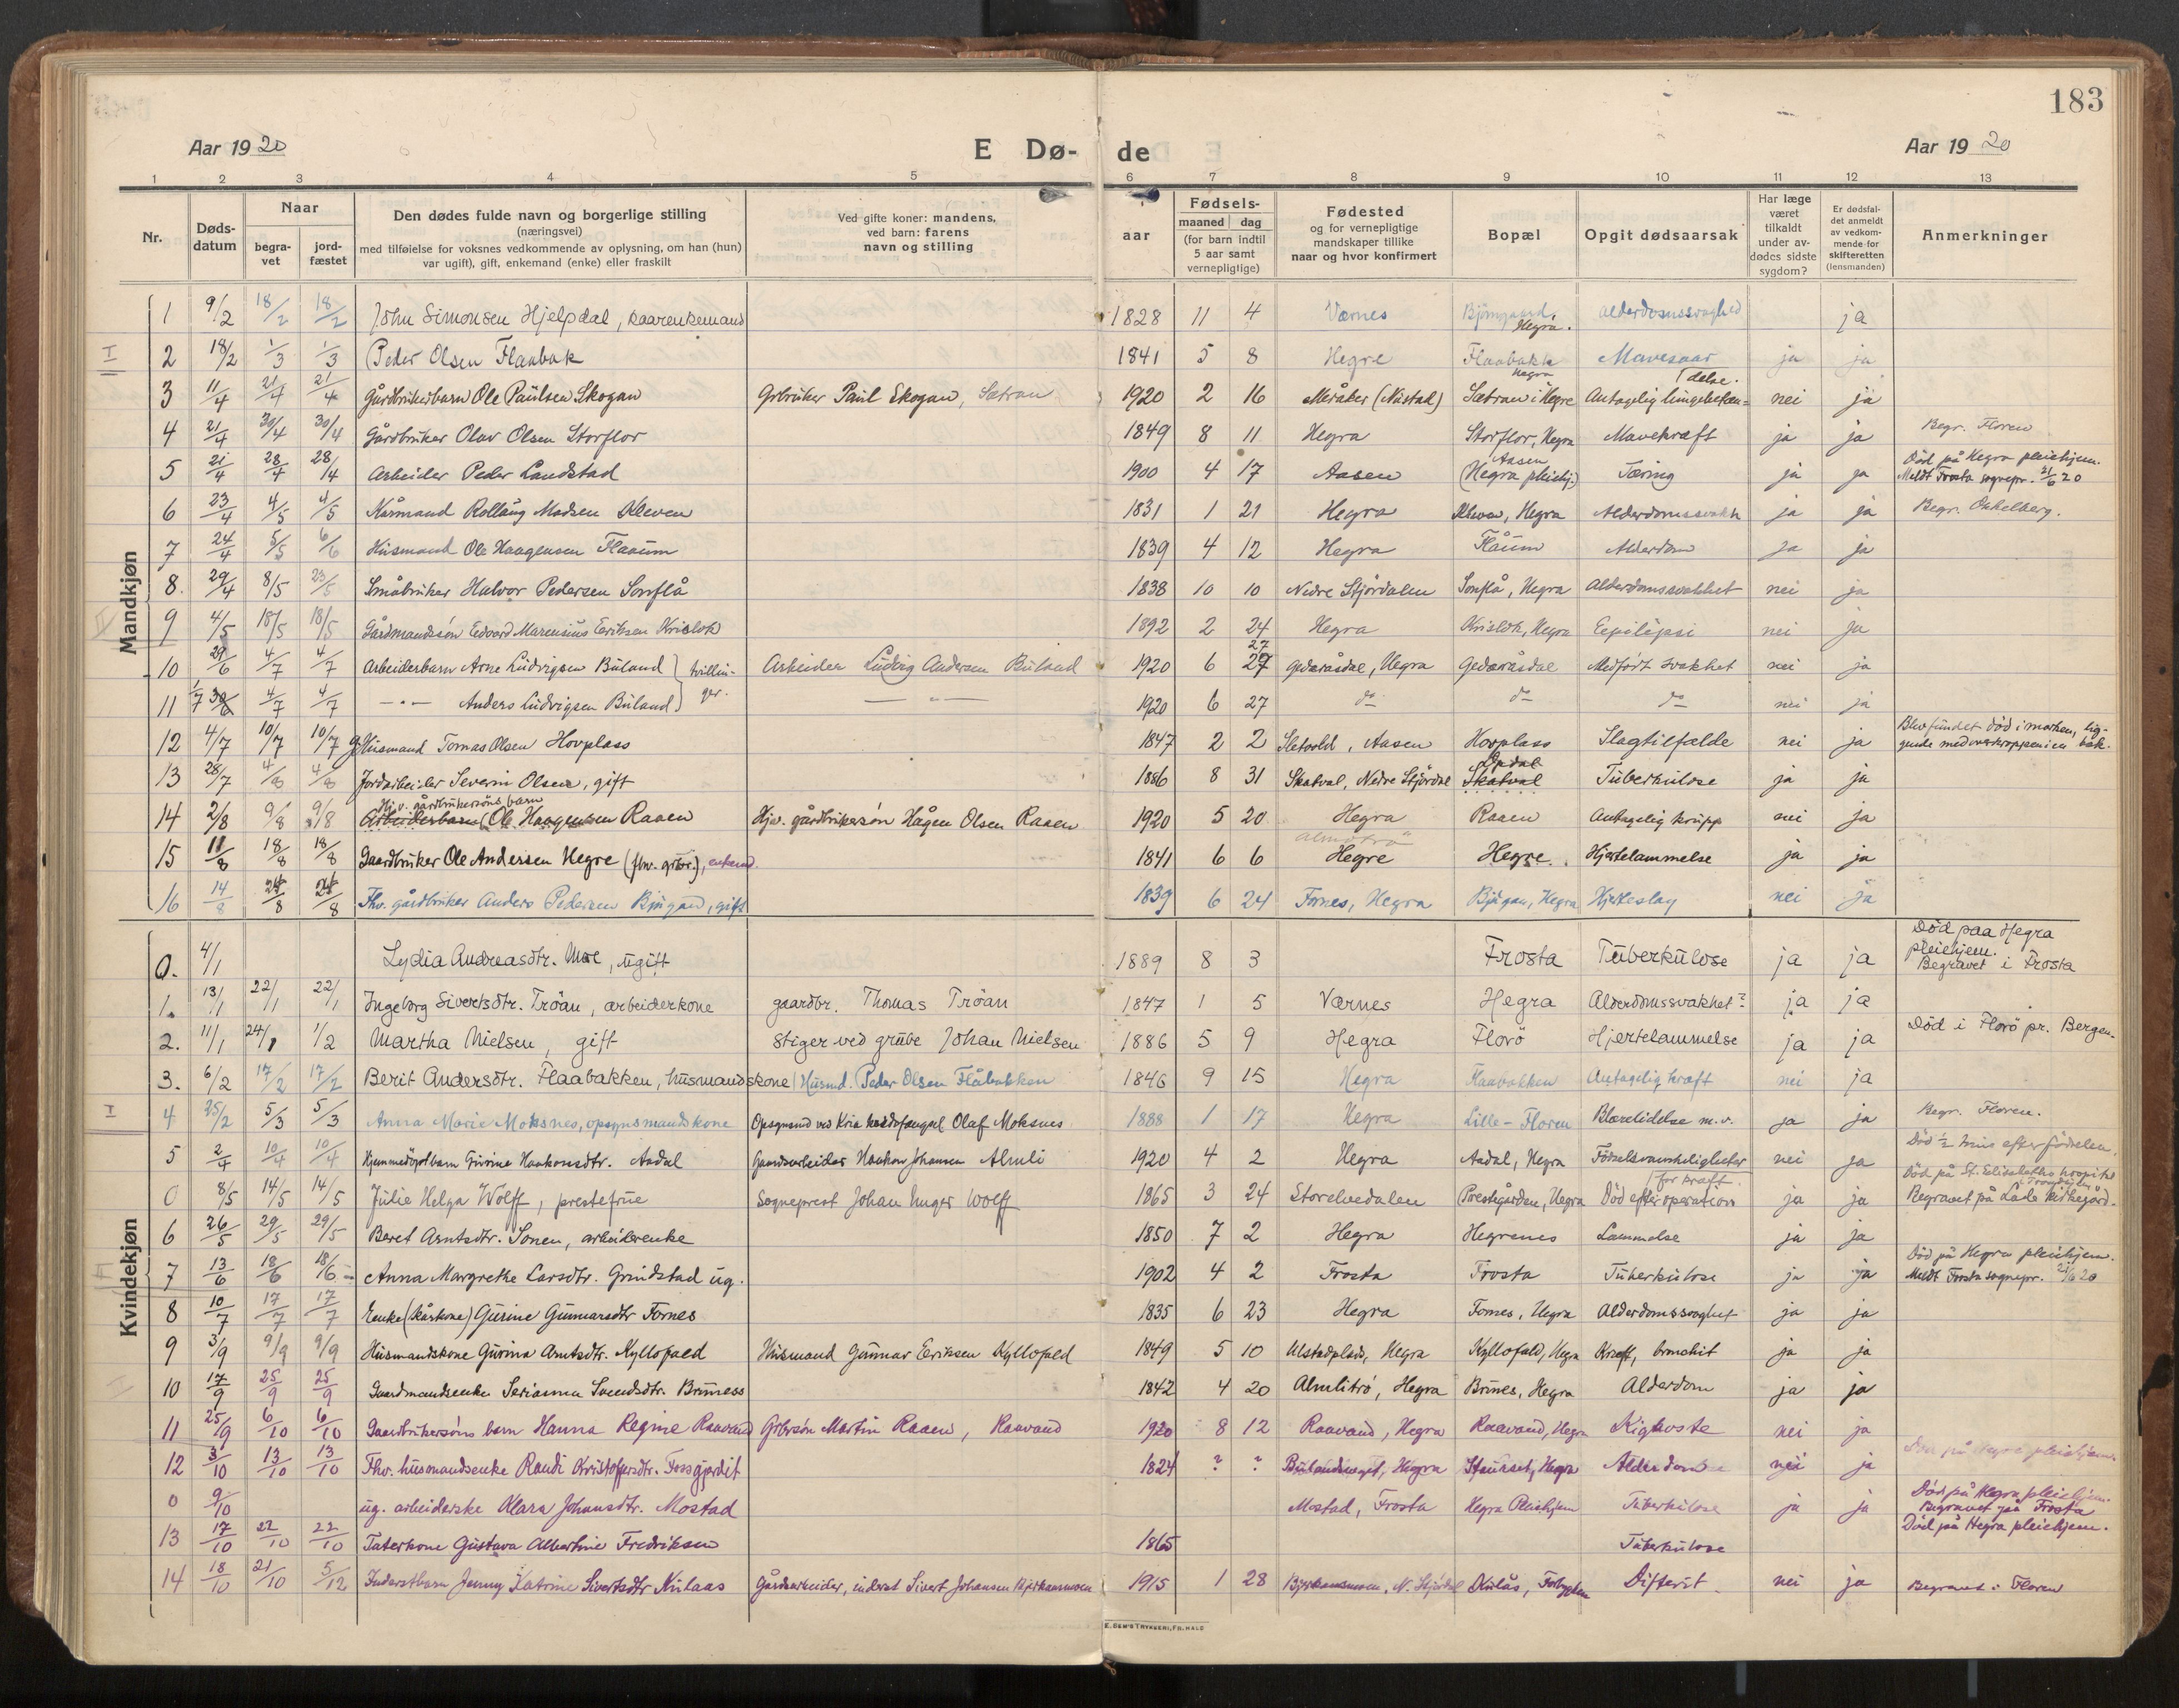 183
Aar 1920 E Dø- de Aar 1920
1 2 3 4 5 6 7 8 9 10 11 12 13
Nr. Døds-datum Naar begra-vet jord-fæstet Den dødes fulde navn og borgerlige stilling (næringsvei) med tilføielse for voksnes vedkommende av oplysning, om han (hun) var ugift), gift, enkemand (enke) eller fraskilt Ved gifte koner: mandens, ved barn: farens navn og stilling aar Fødsels- maaned dag (for barn indtil 5 aar samt vernepligtige) Fødested og for vernepligtige mandskaper tillike naar og hvor konfirmert Bopæl Opgit dødsaarsak Har læge været tilkaldt under av-dødes sidste sygdom? Er dødsfal-det anmeldt av vedkom-mende for skifteretten (lensmanden) Anmerkninger
Mandkjøn
1 9/2 18/2 18/2 John Simonsen Hjelpdal, kaarenkemand 1828 11 4 Værnes Hegra. Alderdomssvaghed ja
I 2 18/2 1/3 1/3 Peder Olsen Flaabak 1841 5 8 Hegre Flaabakk Hegra Mavesaar ja ja
3 11/4 21/4 21/4 Gårdbrukerbarn Ole Paulsen Skogan Grbruker Paul Skogan, Sætran 1920 2 16 Meråker (Nustad) Sætran i Hegre Antagelig lungebetæn=delse. nei ja
4 21/4 30/4 30/4 Gårdbruker Olav Olsen Storflor 1849 8 11 Hegra Storflor, Hegra Mavekræft ja ja Begr. Floren
5 21/4 28/4 28/4 Arbeider Peder Landstad 1900 4 17 Aasen Aasen (Hegra pleiehj.) Tæring ja ja Död på Hegra pleiehjem. Meldt Frosta sognepr. 21/6 20
6 23/4 4/5 4/5 Kårmand Rollaug Madsen Kleven 1831 1 21 Hegra Kleven, Hegra Alderdomssvakh ja ja Begr. Onkelberg.
7 24/4 5/5 6/6 Husmand Ole Haagensen Flaaum 1839 4 12 Hegra Flåum Alderdom ja ja
8. 29/4 8/5 23/5 Småbruker Halvor Pedersen Sonflå 1838 10 10 Nedre Stjördalen Sonflå, Hegra Alderdomssvakhet nei ja
9 4/5 18/5 18/5 Gårdmandssön Edvard Marensius Eriksen Krislok 1892 2 24 Hegra Krislok, Hegra Eepilepsi nei ja
10 29/6 4/7 4/7 Arbeiderbarn Arne Ludvigsen Buland } tvillin- Arbeider Ludvig Andersen Buland 1920 6 27 27 Gederåsdal, Hegra Gederåsdal Medfödt svakhet nei ja
11 1/7 4/7 4/7 -"- Anders Ludvigsen Buland } ger. -"- 1920 6 27 do do do nei ja
12 4/7 10/7 10/7 Husmand Tomas Olsen Hovplass 1847 2 2 Sletvold, Aasen Hovplass Slagtilfælde nei ja Blev fundet död i marken, lig-gende med overkroppen i en bæk.
13 28/7 4/8 4/8 Jordarbeider Severin Olsen, gift 1886 8 31 Skatval, Nedre Stjördal Opdal Skatval Tuberkulose ja ja
14 2/8 9/8 9/8 Hjv. gårdbrukersöns barn Arbeiderbarn (Ole Haagensen Raaen Hjv. gårdbrukersön Hågen Olsen Raaen 1920 5 20 Hegra Raaen Antagelig krupp nei ja
15 11/8 18/8 18/8 Gaardbruker Ole Andersen Hegre (fhv. grbr.), enkemd. 1841 6 6 Hegre Hegre. Hjertelammelse ja ja
16 14/8 24/8 24/8 Fhv. gårdbruker Anders Pedersen Björgan, gift 1839 6 24 Fornes, Hegra Björgan, Hegra Hjerteslag nei ja
Kvindekjøn
0. 4/1 Lydia Andreasdtr. Moe, ugift 1889 8 3 Frosta Tuberkulose ja ja Död paa Hegra pleiehjem. Begravet i Frosta
1. 13/1 22/1 22/1 Ingeborg Sivertsdtr. Tröan, arbeiderkone gaardbr. Thomas Tröan 1847 1 5 Værnes Hegra Alderdomssvakhet? ja ja
2. 11/1 24/1 1/2 Martha Nielsen, gift Stiger ved grube Johan Nielsen 1886 5 9 Hegra Florö Hjertelammelse ja ja Död i Florö pr. Bergen
3. 6/2 17/2 17/2 Berit Andersdtr. Flaabakken, husmandskone Husmd. Peder Olsen Flåbakken 1846 9 15 Hegra Flaabakken Antagelig kræft nei ja
I 4 25/2 5/3 5/3 Anna Marie Moksnes, opsynsmandskone Opsynsmd ved Kria Olaf Moksnes 1888 1 17 Hegra Lille-Floren Blærelidelse m.v. ja ja Begr. Floren.
5 2/4 10/4 10/4 Haakonsdtr. Aadal Gaardsarbeider Haakon Johansen Almli 1920 4 2 Hegra Aadal, Hegra Födselsvanskeligheter nei ja Död ½ time efter födselen.
0 8/5 14/5 14/5 Julie Helga Wolff, prestefrue Sogneprest Johan Unger Wolff 1865 3 24 Storelvedalen Prestegården, Hegra Död efter operation for kræft ja ja Död på St. Elisabeths hospital Begravet på Lade kirkegård.
6 26/5 29/5 29/5 Beret Arntsdtr. Sonen, arbeiderenke 1850 7 2 Hegra Hegrenes Lammelse ja ja
7 13/6 18/6 18/6 Anna Margrethe Larsdtr. Grindstad ug. 1902 4 2 Frosta Frosta Tuberkulose ja ja Död på Hegra pleiehjem. Meldt Frosta sognepr. 21/6 20
8 10/7 17/7 17/7 Enke (kårkone) Gurine Gunnarsdtr Fornes 1835 6 23 Hegra Fornes, Hegra Alderdomssvaghet ja ja
9 3/9 9/9 9/9 Husmandskone Gurina Arntsdtr. Kyllofald Husmand Gunnar Eriksen Kyllofald 1849 5 10 Ulstadplads, Hegra Kyllofald, Hegra Kræft, bronchit ja ja
10 17/9 25/9 25/9 Gaardmandsenke Serianna Svendsdtr. Bruness 1842 4 20 Almlitrö, Hegra Brunes, Hegra Alderdom ja ja
11 25/9 6/10 6/10 Gaardbrukersöns barn Hanna Regine Raavand Grbrsön Martin Raaen, Raavand 1920 8 12 Raavand, Hegra Raavand, Hegra Kighoste nei ja
12 3/10 13/10 13/10 Fhv. husmandsenke Randi Kristoffersdtr. Fossgjardit 1824 ? ? Hegra Hegra Alderdom nei ja Död på Hegra pleiehjem.
0 9/10 ug. arbeiderske Klara Johansdtr. Mostad Mostad, Frosta Hegra Pleiehjem Tuberkulose ja ja Död på Hegra pleiehjem. Begravet på Frosta
13 17/10 22/10 22/10 Taterkone Gustava Albertine Fredriksen 1865 Tuberkulose Död på Hegra pleiehjem.
14 18/10 21/10 5/12 Inderstbarn Jenny Katrine Sivertsdtr Kulaas Gårdsarbeider, inderst Sivert Johansen Bjerkansmoen 1915 1 28 Bjerkansmoen, N. Stjördal Kulås, Forbygden Difterit. nei ja Begravet i Floren
E. SEM'S TRYKKERI, FR.HALD